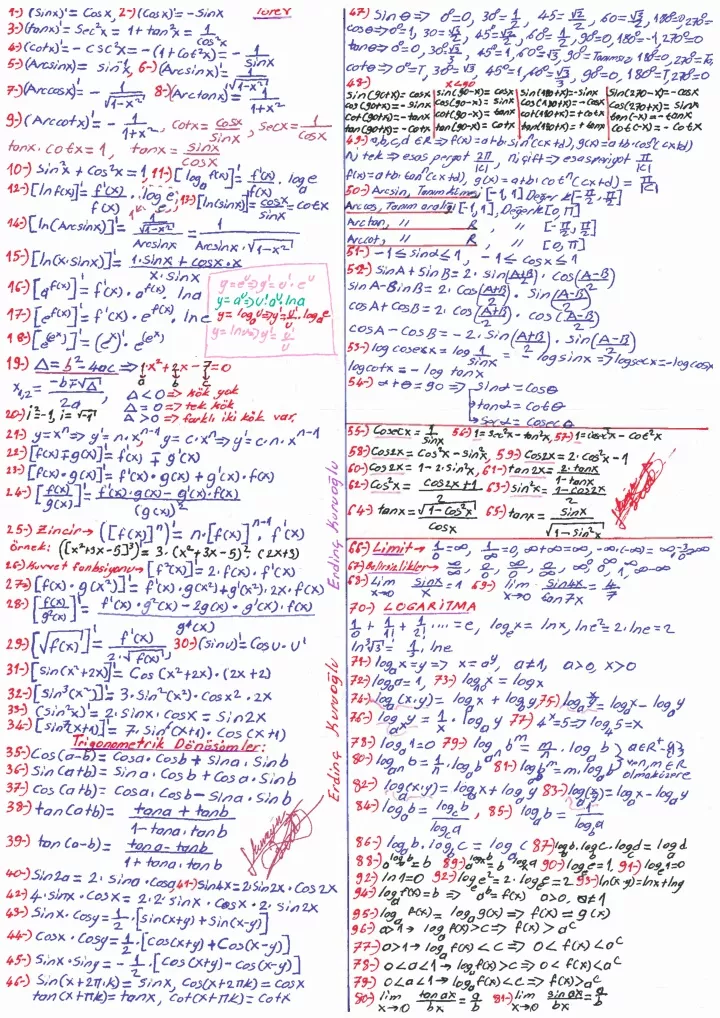 1-) (Sinx)' = Cosx, 2-) (Cosx)' = -Sinx
3-) (tanx)' = Sec²x = 1+tan²x = 1/cos²x
4-) (cotx)' = -csc²x = -(1+Cot²x) = -1/sin²x
7-) (Arccosx)' = -1/√(1-x²), 8-) (Arctanx)' = 1/(1+x²)
9-) (Arccotx)' = -1/(1+x²), cotx = cosx/sinx, secx = 1/cosx
tanx.cotx = 1, tanx = sinx/cosx
10-) Sin²x + Cos²x = 1, 11-) [log_a f(x)]' = f'(x)/f(x) . log_a e
12-) [ln f(x)]' = f'(x)/f(x) . log_e e, 13-) [ln(sinx)]' = cosx/sinx = cotx
14-) [ln(Arcsinx)]' = (1/√(1-x²))/Arcsinx = 1/(Arcsinx.√(1-x²))
15-) [ln(x.sinx)]' = (1.sinx + cosx.x)/(x.sinx)
16-) [a^f(x)]' = f'(x).a^f(x).lna
17-) [e^f(x)]' = f'(x).e^f(x).lne
y=e^u => y'=u'.e^u
y=a^u => u'.a^u.lna
y=log_a u => y'=u'/u.log_a e
y=lnu => y'=u'/u
19-) Δ = b²-4ac => 1.x²+2x-7=0
a b c
x1,2 = (-b∓√Δ)/2a
Δ<0 => kök yok
Δ=0 => tek kök
Δ>0 => farklı iki kök var,
20-) i²=-1, i=√-1
21-) y=x^n => y'=n.x^(n-1), y=c.x^n => y'=c.n.x^(n-1)
22-) [f(x)∓g(x)]' = f'(x)∓g'(x)
23-) [f(x).g(x)]' = f'(x).g(x)+g'(x).f(x)
24-) [f(x)/g(x)]' = (f'(x).g(x)-g'(x).f(x))/(g(x))²
25-) Zincir → ([f(x)]^n)' = n.[f(x)]^(n-1).f'(x)
Örnek: ([x²+3x-5]³)' = 3.(x²+3x-5)².(2x+3)
26-) Kuvvet fonksiyonu → [f²(x)]' = 2.f(x).f'(x)
27-) [f(x).g(x²)]' = f'(x).g(x²)+g'(x²).2x.f(x)
28-) [f(x)/g²(x)]' = (f'(x).g²(x)-2g(x).g'(x).f(x))/g⁴(x)
29-) [√f(x)]' = f'(x)/(2.√f(x)), 30-) (sinu)' = Cosu.u'
31-) [sin(x²+2x)]' = Cos(x²+2x).(2x+2)
32-) [sin³(x²)]' = 3.Sin²(x²).Cosx².2x
33-) (Sin²x)' = 2.sinx.cosx = Sin2x
34-) [sin⁷(x+1)]' = 7.Sin⁶(x+1).Cos(x+1)
Trigonometrik Dönüşümler:
35-) Cos(a-b) = Cosa.Cosb + Sina.Sinb
36-) Sin(a+b) = Sina.Cosb + Cosa.Sinb
37-) Cos(a+b) = Cosa.Cosb - Sina.Sinb
38-) tan(a+b) = (tana+tanb)/(1-tana.tanb)
39-) tan(a-b) = (tana-tanb)/(1+tana.tanb)
40-) Sin2a = 2.sina.cosa, 41-) Sin4x = 2.Sin2x.Cos2x
42-) 4.sinx.cosx = 2.2.sinx.cosx = 2.sin2x
43-) Sinx.Cosy = 1/2.[sin(x+y)+Sin(x-y)]
44-) Cosx.Cosy = 1/2.[cos(x+y)+Cos(x-y)]
45-) Sinx.Siny = -1/2.[cos(x+y)-cos(x-y)]
46-) Sin(x+2π.k) = Sinx, Cos(x+2πk) = cosx
tan(x+πk) = tanx, Cot(x+πk) = Cotx
Erdinç Kuruoğlu
Erdinç Kuruoğlu
48-) x<90
sin(90+x)=cosx sin(90-x)=cosx sin(180+x)=-sinx sin(270-x)=-cosx
cos(90+x)=-sinx cos(90-x)=sinx cos(180+x)=-cosx cos(270+x)=sinx
cot(90+x)=-tanx cot(90-x)=tanx cot(180+x)=+cotx tan(-x)=-tanx
tan(90+x)=-cotx tan(90-x)=cotx tan(180+x)=+tanx cot(-x)=-cotx
49-) a,b,c,d ∈R => f(x)=a+b.sin^n(cx+d), g(x)=a+b.cos^n(cx+d)
n tek => esas periyot 2π/|c|, n çift => esas periyot π/|c|
f(x)=a+b.tan^n(cx+d), g(x)=a+b.cot^n(cx+d) = π/|c|
50-) Arcsin, Tanım kümesi [-1,1] Değer k[-π/2, π/2]
Arccos, Tanım aralığı [-1,1], Değer k[0,π]
Arctan, " R, " [-π/2, π/2]
Arccot, " R, " [0,π]
51-) -1≤sinα≤1, -1≤cosx≤1
52-) SinA+SinB = 2.sin((A+B)/2).cos((A-B)/2)
sinA-SinB = 2.cos((A+B)/2).sin((A-B)/2)
cosA+cosB = 2.cos((A+B)/2).cos((A-B)/2)
cosA-cosB = -2.sin((A+B)/2).sin((A-B)/2)
53-) log cosecx = log 1/sinx = -log sinx => log secx = -log cosx
log cotx = -log tanx
54-) α+θ=90 => sinα=cosθ
tanα=cotθ
secα=cosecθ
55-) Cosecx = 1/sinx 56-) 1=sec²x-tan²x, 57-) 1=cosec²x-cot²x
58-) Cos2x = cos²x-sin²x, 59-) Cos2x = 2.cos²x-1
60-) Cos2x = 1-2.sin²x, 61-) tan2x = 2.tanx/(1-tan²x)
62-) Cos²x = (cos2x+1)/2, 63-) sin²x = (1-cos2x)/2
64-) tanx = √(1-cos²x)/cosx 65-) tanx = sinx/√(1-sin²x)
68-) Lim x→0 sinx/x = 1 69-) lim x→0 sin4x/tan7x = 4/7
70-) LOGARİTMA
1/0! + 1/1! + 1/2! .... = e, log_e x = lnx, lne² = 2.lne = 2
71-) log_a x = y => x = a^y, a≠1, a>0, x>0
72-) log_a a = 1, 73-) log_10 x = logx
74-) log_a(x.y) = log_a x + log_a y, 75-) log_a x/y = log_a x - log_a y
77-) 4^x=5 => log_4 5 = x
78-) log_a 1 = 0 79-) log_a^n b^m = m/n.log_a b } a∈R⁺-{1} ve n,m∈R olmak üzere
80-) log_a^n b = 1/n.log_a b, 81-) log_a b^m = m.log_a b
82-) log(x.y) = logx + logy 83-) log(x/y) = logx - logy
84-) log_a b = log_c b/log_c a, 85-) log_a b = 1/log_b a
86-) log_a b.log_b c = log_a c 87-) log_a b.log_b c.log_c d = log_a d
88-) a^(log_a b) = b 90-) log_e e = 1, 91-) log_e 1 = 0
92-) ln1=0 92-) log_e e² = 2.log_e e = 2 93-) ln(x.y) = lnx+lny
94-) log_a f(x) = b => a^b = f(x) a>0, a≠1
95-) log_a f(x) = log_a g(x) => f(x) = g(x)
96-) a>1 → log_a f(x) > c => f(x) > a^c
77-) a>1 → log_a f(x) < c => 0<f(x)<a^c
78-) 0<a<1 → log_a f(x) > c => 0<f(x)<a^c
79-) 0<a<1 → log_a f(x) < c => f(x) > a^c
80-) lim x→0 tan ax/bx = a/b 81-) lim x→0 sin ax/bx = a/b